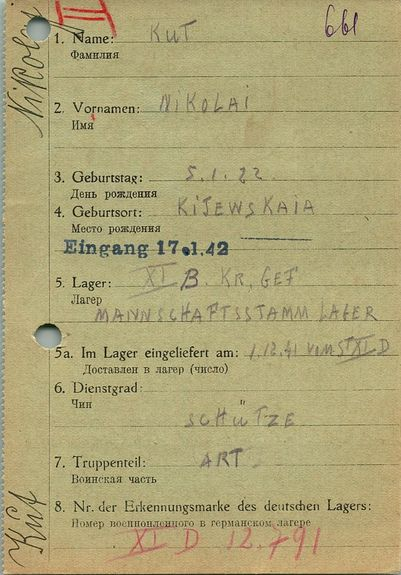 Nikolaj
II
661
1. Name: KUT
Фамилия
2. Vornamen: NIKOLAI
Имя
3. Geburtstag: 5.1.22
День рождения
4. Geburtsort: KIJEWSKAIA
Место рождения
Eingang 17.1.42
5. Lager: XI B. KR, GEF
Лагер
MANNSCHAFTSSTAMM LAGER
5a. Im Lager eingeliefert am: 1.12.41 vom St XI D
Доставлен в лагер (число)
6. Dienstgrad:
Чин
SCHÜTZE
7. Truppenteil: ART.
Воинская часть
8. Nr. der Erkennungsmarke des deutschen Lagers:
Номер военнопленного в германском лагере
XI D 12.791
Kut